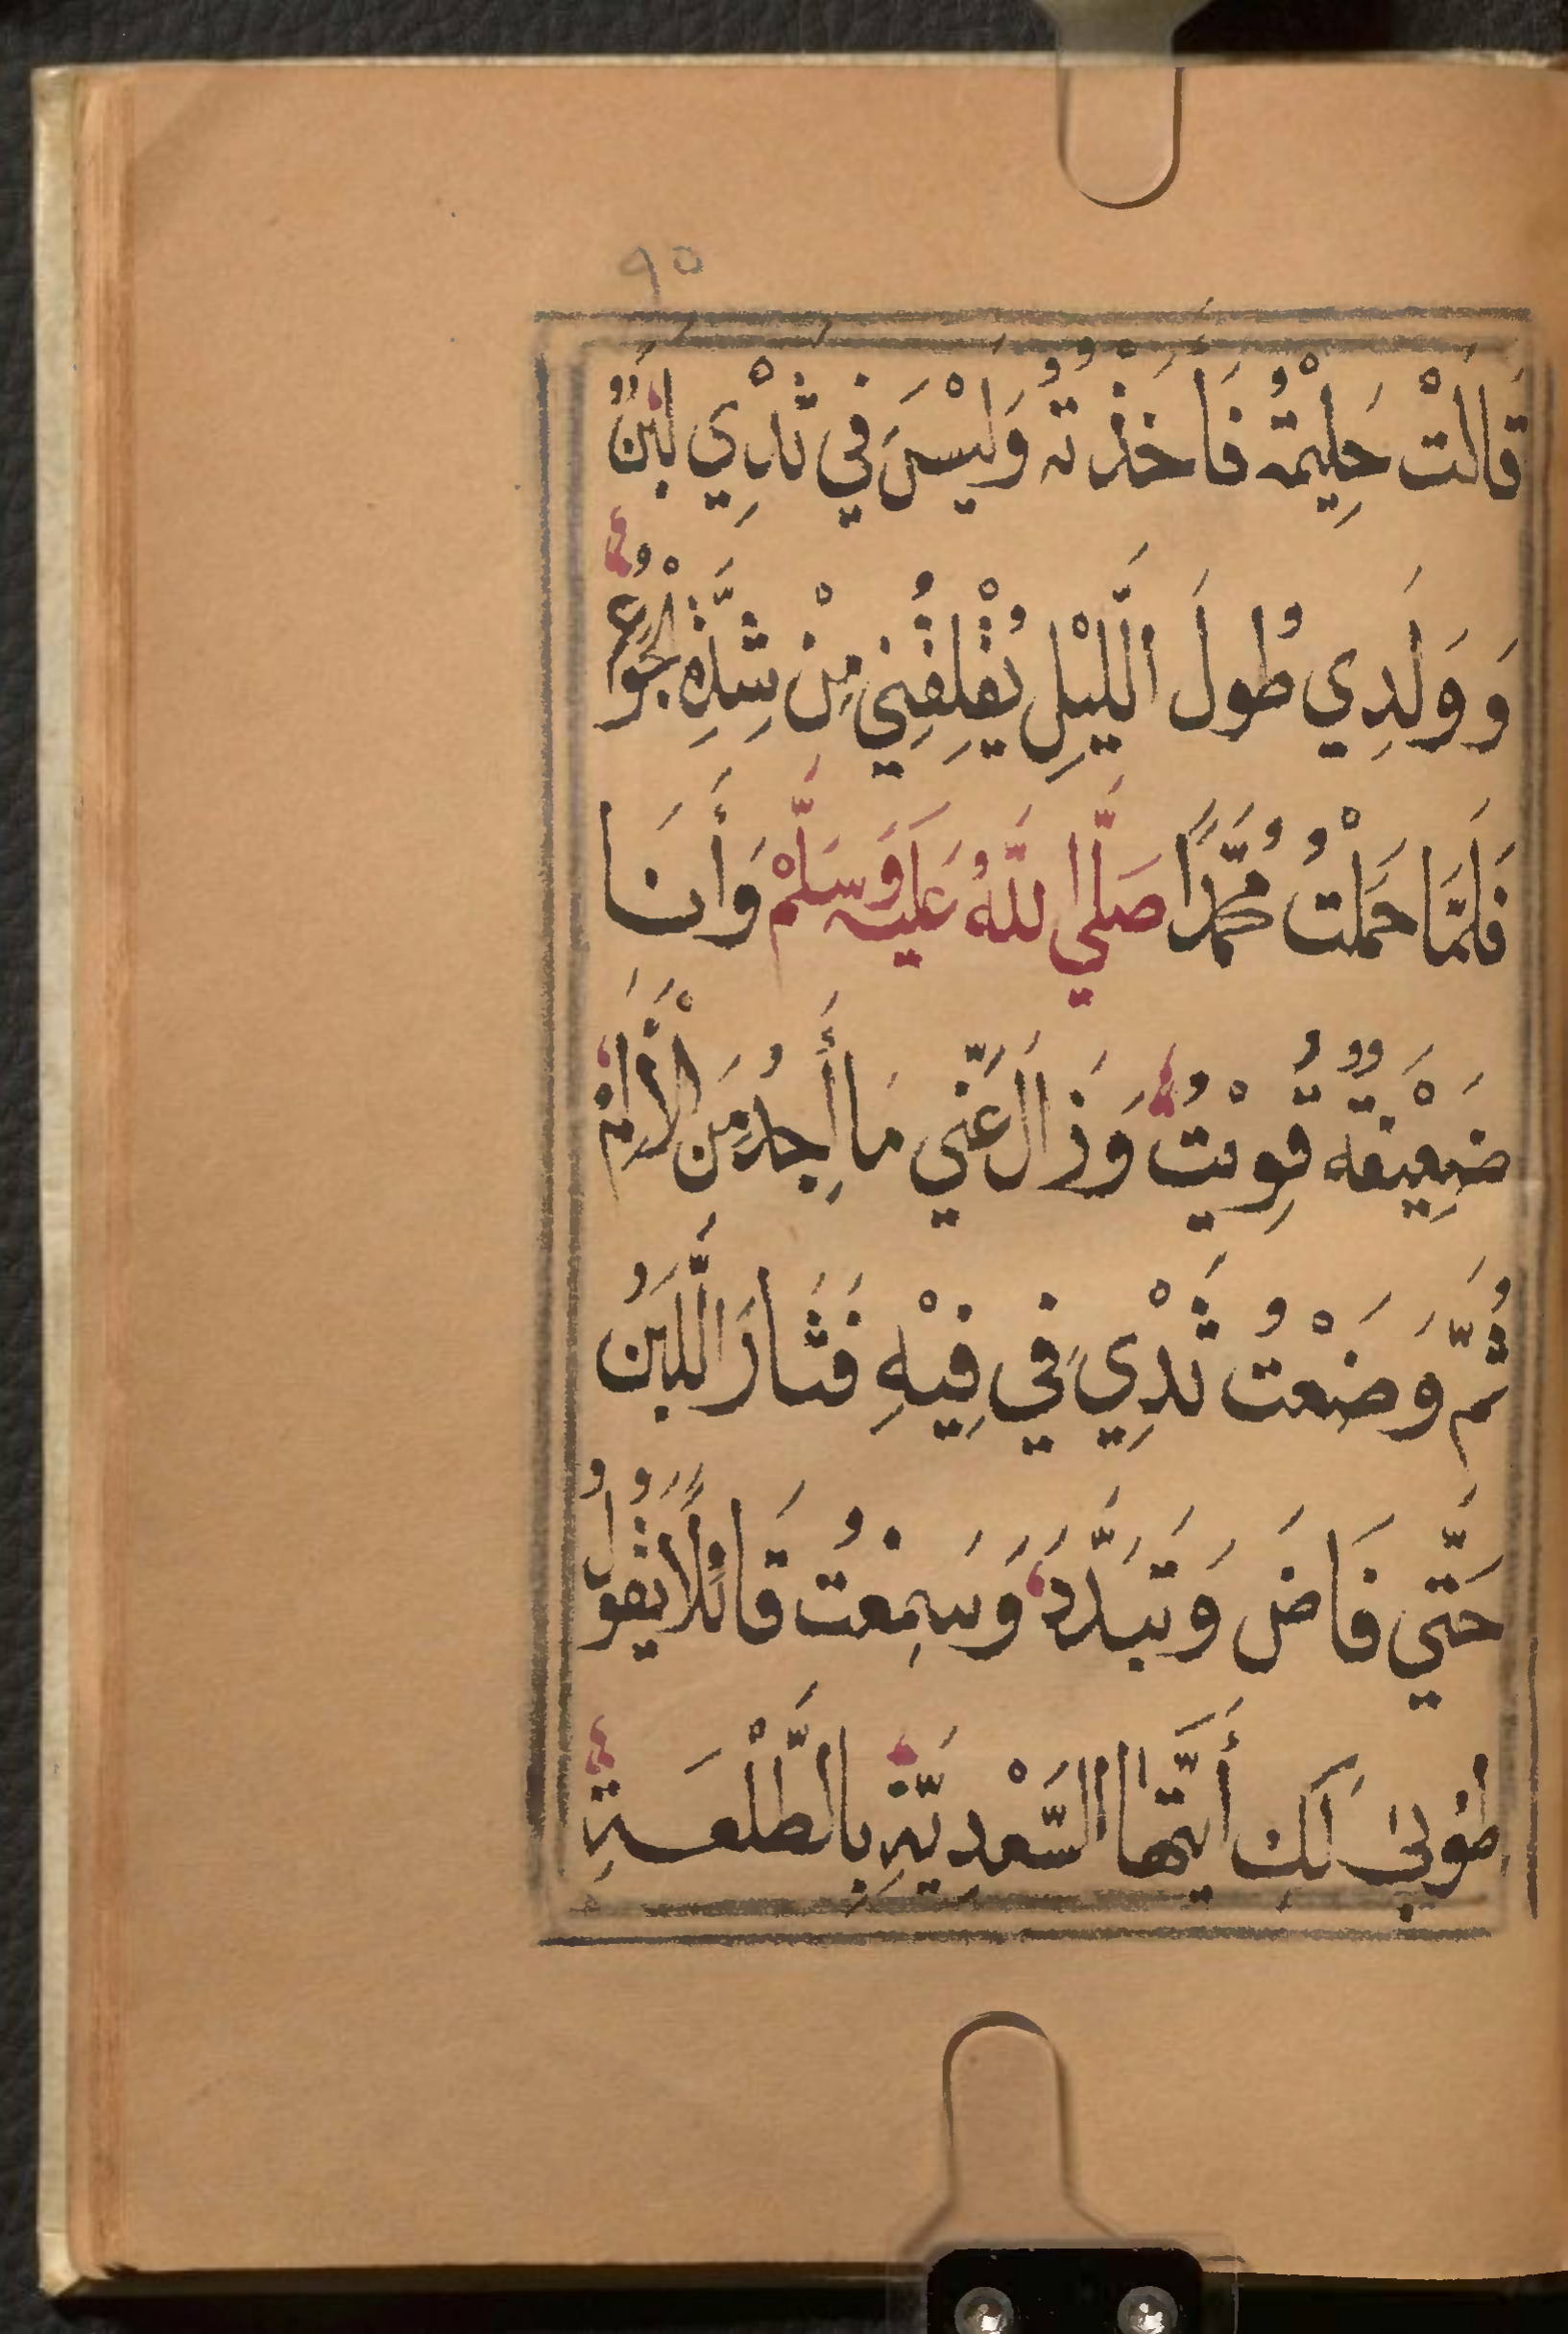 ٩٥
قَالَتْ حَلِيْمَةُ فَأَخَذْتُهُ وَلَيْسَ فِي ثَدْيِي لَبَنٌ
وَوَلَدِي طُولَ اللَّيْلِ يُقْلِقُنِي مِنْ شِدَّةِ الْجُوْعِ
فَلَمَّا حَمَلْتُ مُحَمَّدًا صَلَّي اللَّهُ عَلَيْهِ وَسَلَّمْ وَأَنَا
ضَعِيْفَةٌ قُوِيْتُ وَزَالَ عَنِّي مَا أَجِدُ مِنَ الْأَلَمْ
ثُمَّ وَضَعْتُ ثَدْيِي فِي فِيْهِ فَثَارَ اللَّبَنُ
حَتَّي فَاضَ وَتَبَدَّدَ وَسَمِعْتُ قَائِلًا يَقُولُ
طُوْبَىٰ لَكِ أَيَّتُهَا السَّعْدِيَّةِ بِالطَّلْعَةِ